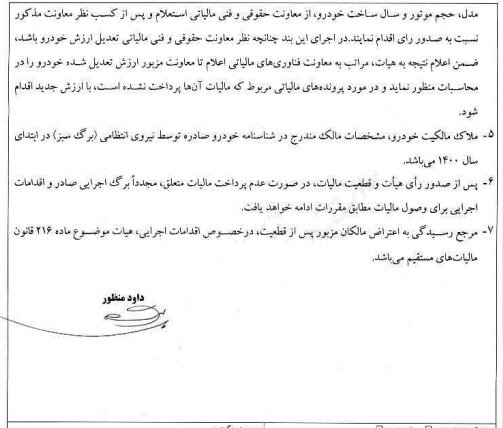 مدل، حجم موتور و سال ساخت خودرو، از معاونت حقوقی و فنی مالیاتی استعلام و پس از کسب نظر معاونت مذکور
نسبت به صدور رای اقدام نمایند.در اجرای این بند چنانچه نظر معاونت حقوقی و فنی مالیاتی تعدیل ارزش خودرو باشد،
ضمن اعلام نتیجه به هیات، مراتب به معاونت فناوری‌های مالیاتی اعلام تا معاونت مزبور ارزش تعدیل شده خودرو را در
محاسبات منظور نماید و در مورد پرونده‌های مالیاتی مربوط که مالیات آن‌ها پرداخت نشده است، با ارزش جدید اقدام
شود.
۵- ملاک مالکیت خودرو، مشخصات مالک مندرج در شناسنامه خودرو صادره توسط نیروی انتظامی (برگ سبز) در ابتدای
سال ۱۴۰۰ می‌باشد.
۶- پس از صدور رأی هیأت و قطعیت مالیات، در صورت عدم پرداخت مالیات متعلق، مجدداً برگ اجرایی صادر و اقدامات
اجرایی برای وصول مالیات مطابق مقررات ادامه خواهد یافت.
۷- مرجع رسیدگی به اعتراض مالکان مزبور پس از قطعیت، درخصوص اقدامات اجرایی، هیات موضوع ماده ۲۱۶ قانون
مالیات‌های مستقیم می‌باشد.
داود منظور